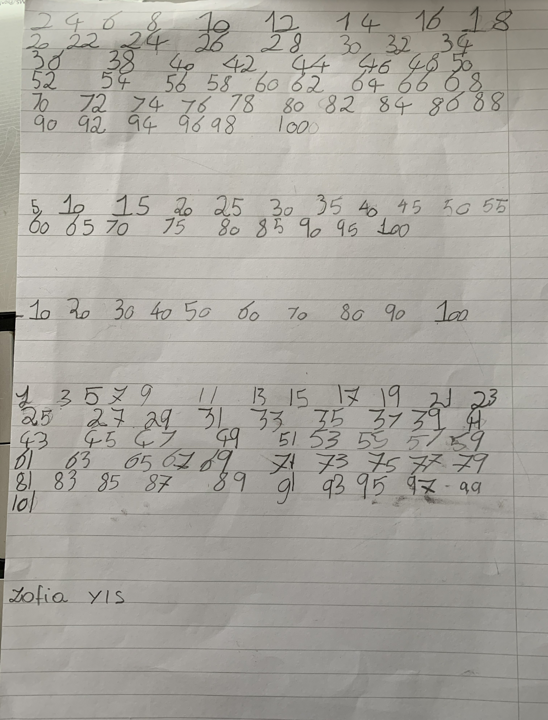 2 4 6 8 10 12 14 16 18
20 22 24 26 28 30 32 34
36 38 40 42 44 46 48 50
52 54 56 58 60 62 64 66 68
70 72 74 76 78 80 82 84 86 88
90 92 94 96 98 100
5 10 15 20 25 30 35 40 45 50 55
60 65 70 75 80 85 90 95 100
10 20 30 40 50 60 70 80 90 100
1 3 5 7 9 11 13 15 17 19 21 23
25 27 29 31 33 35 37 39 41
43 45 47 49 51 53 55 57 59
61 63 65 67 69 71 73 75 77 79
81 83 85 87 89 91 93 95 97 99
101
Zofia Y1S